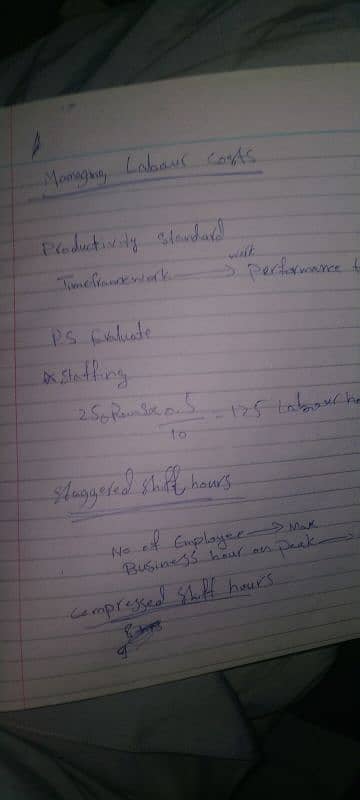 Managing Labour Costs
Productivity Standard
Timeframework → work performance
PS Evaluate
Staffing
250 Rooms x 0.5 = 125 Labour ho
10
Staggered Shift hours
No of Employee → Max
Business hour on Peak →
Compressed Shift hours
8